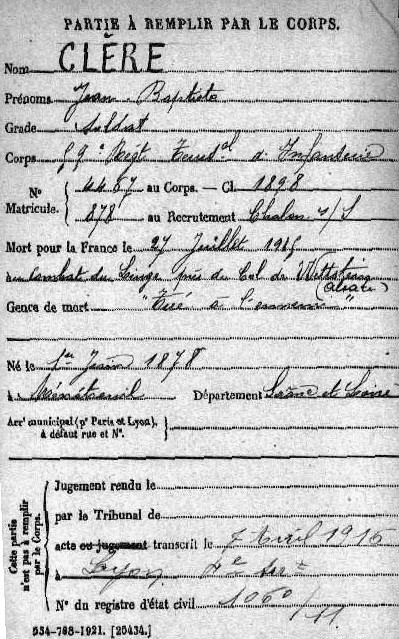 PARTIE À REMPLIR PAR LE CORPS.
Nom CLÈRE
Prénoms Jean Baptiste
Grade Soldat
Corps 59e Régt Territal d'Infanterie
No Matricule. { 4487 au Corps. — Cl. 1898
878 au Recrutement Chalon s/S
Mort pour la France le 27 Juillet 1915
au combat du Linge près du Col de Wettstein
(Alsace)
Genre de mort "Tué à l'ennemi"
Né le 1er Juin 1878
à Département Saône et Loire
Arrt municipal (pr Paris et Lyon), à défaut rue et No. }
Cette partie n'est pas à remplir par le Corps.
Jugement rendu le
par le Tribunal de
acte ou jugement transcrit le 7 Avril 1916
à Lyon, 2e Arrt
No du registre d'état civil 1060/11
534-788-1921. [25434.]